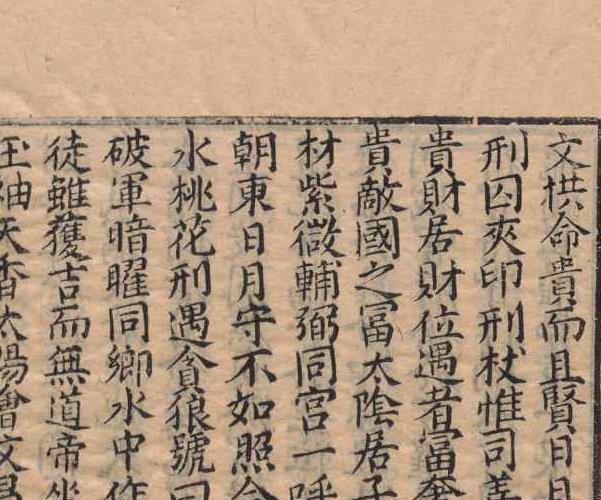 文拱命貴而且賢日月
刑囚夾印刑杖惟司善
貴財居財位遇者富奢
貴敵國之富太陰居子
材紫微輔弼同宫一呼
朝東日月守不如照合
水桃花刑遇貪狼號曰
破軍暗曜同鄉水中作
徒雖獲吉而無道帝坐
玉袖天香太陽會文昌